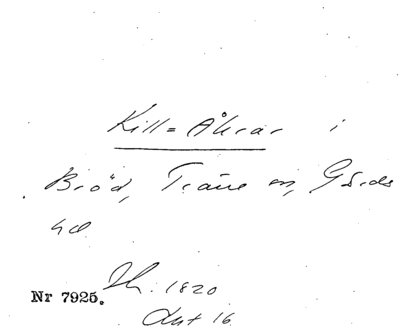 Kill=Åkrar i
Bröd, Träne sn, Gärds
hd
Nr 7925. Jh. 1820
Akt 16